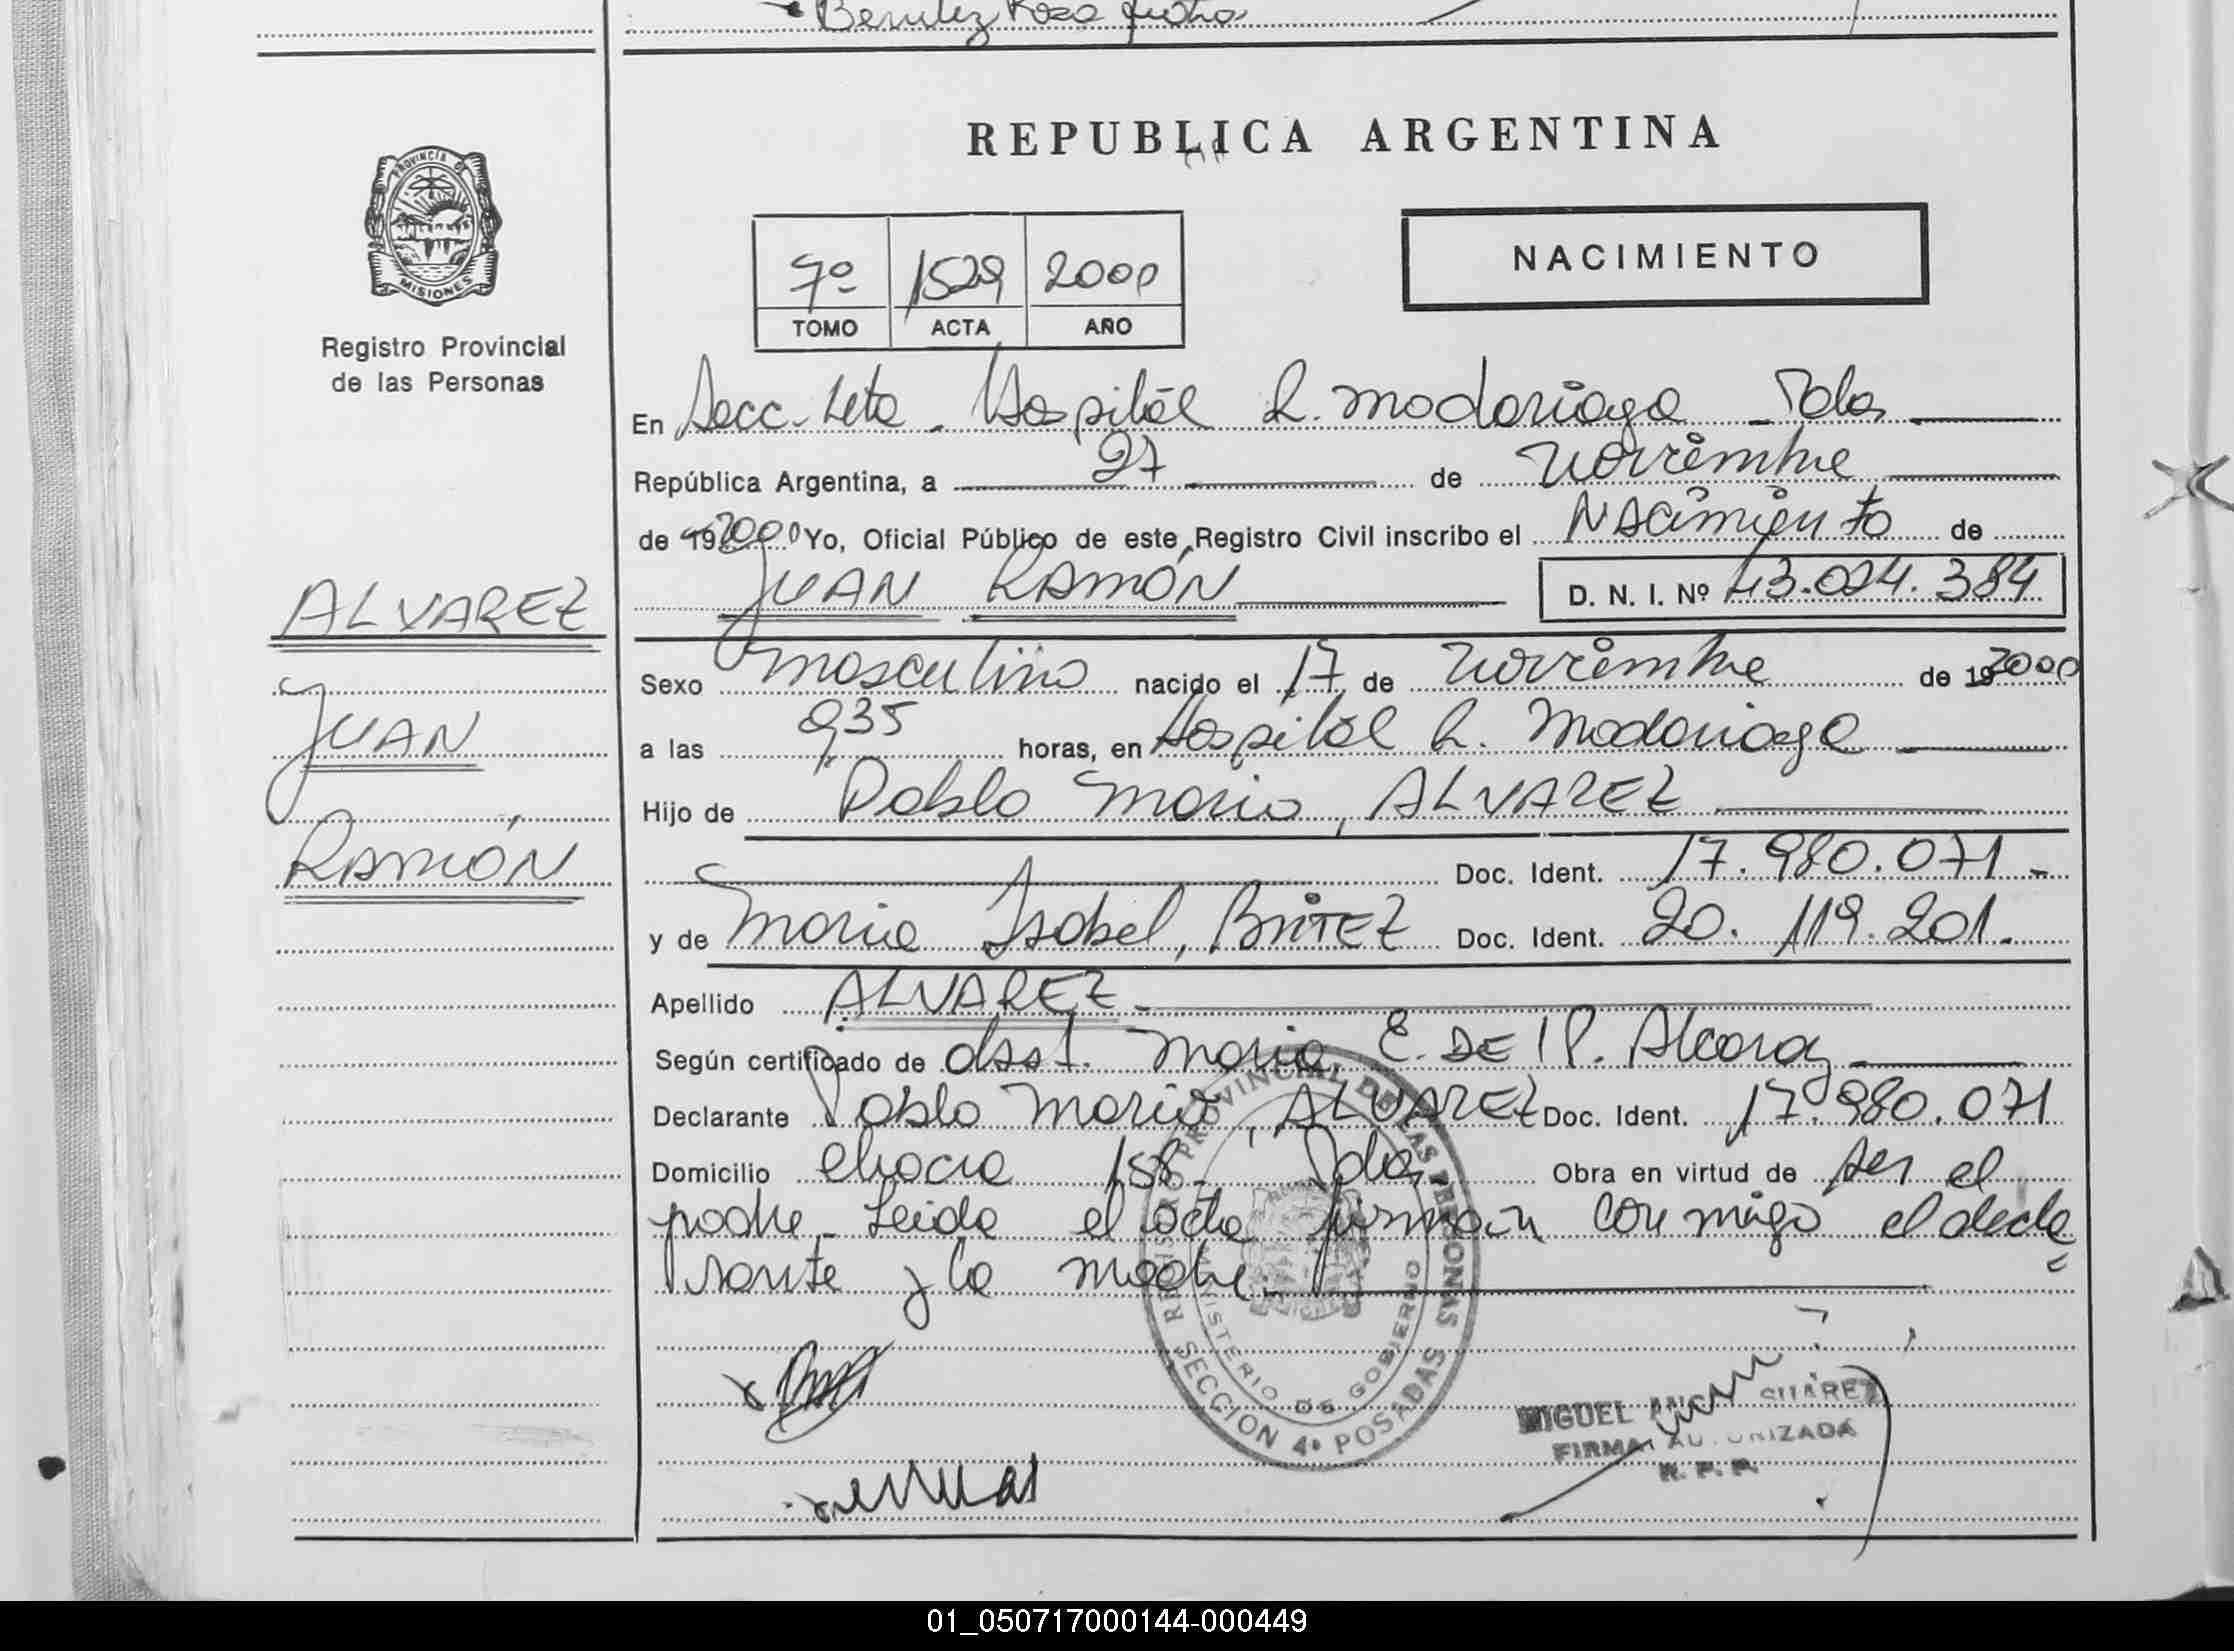 Benitez Rosa
REPUBLICA ARGENTINA
PROVINCIA DE
MISIONES
Registro Provincial
de las Personas
7º 1529 2000
TOMO ACTA AÑO
NACIMIENTO
En Secc. 4ta. Hospital R. Madariaga - Pdas
República Argentina, a 27 de Noviembre
de 19 2000 Yo, Oficial Público de este Registro Civil inscribo el NAcimiento de
JUAN RAMÓN D. N. I. Nº 43.074.384
ALVAREZ
JUAN
RAMÓN
Sexo masculino nacido el 17 de Noviembre de 19 2000
a las 9,35 horas, en Hospital R. Madariaga
Hijo de Pablo Mario, ALVAREZ
Doc. Ident. 17.980.071.-
y de Maria Isabel, BRITEZ Doc. Ident. 20.119.201.
Apellido ALVAREZ.-
Según certificado de obst. Maria E. DE P. Alcaraz
Declarante Pablo Mario, ALVAREZ Doc. Ident. 17.980.071
Domicilio chacra 158 - Pdas Obra en virtud de ser el
padre. Leida el acta firman conmigo el decla
rante y la madre.
REGISTRO PROVINCIAL DE LAS PERSONAS
MINISTERIO DE GOBIERNO
SECCION 4ª POSADAS
MIGUEL ANGEL SUAREZ
FIRMA AUTORIZADA
R. P. P.
01_050717000144-000449